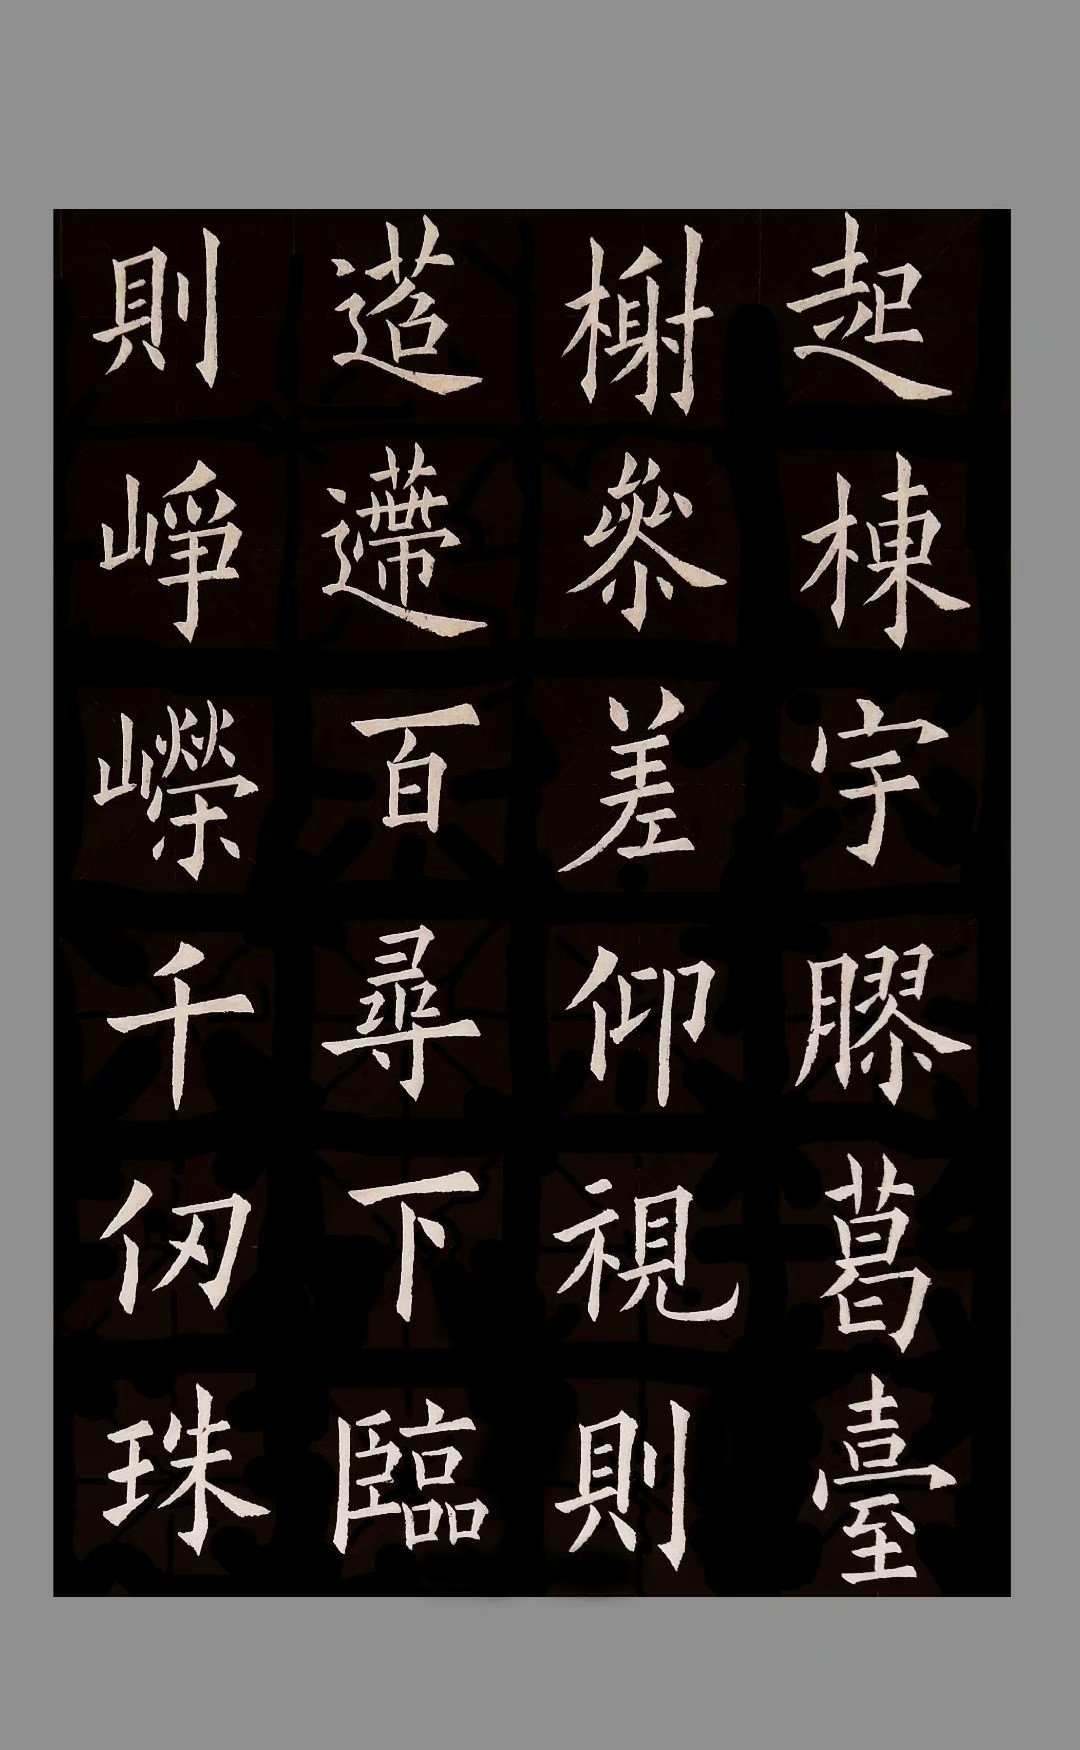 起棟宇膠葛臺
榭參差仰視則
迢遰百尋下臨
則崢嶸千仞珠